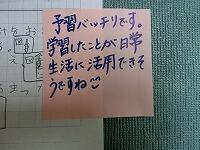 予習バッチリです。
学習したことが日常
生活に活用できそ
うですね